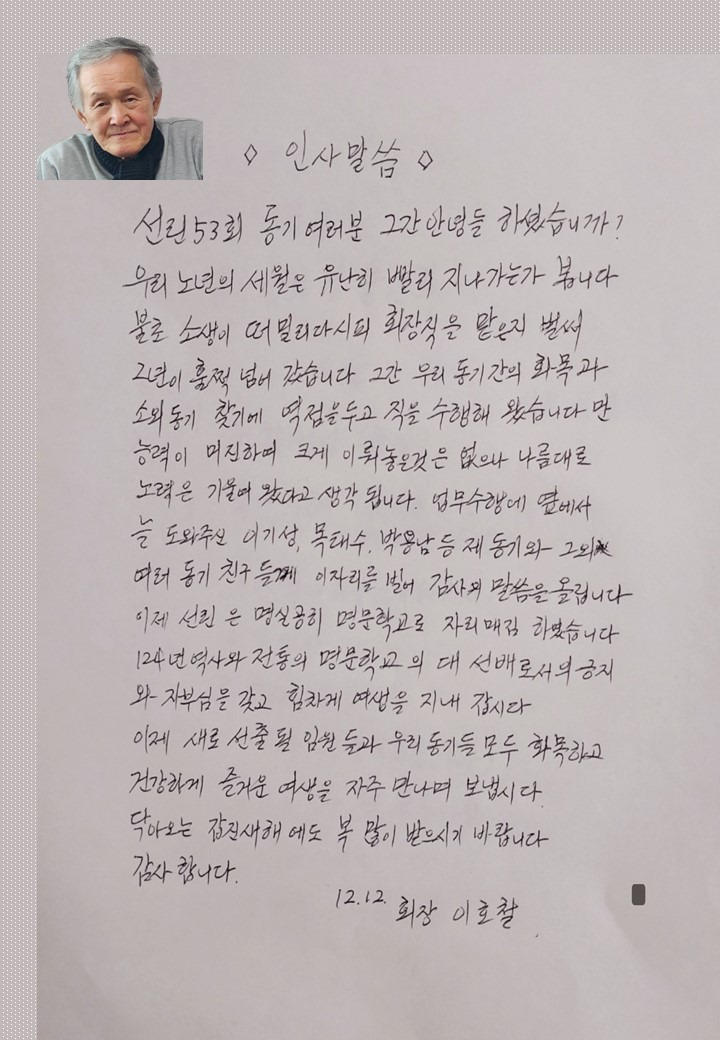 ◇ 인사말씀 ◇
선린53회 동기여러분 그간안녕들 하셨습니까?
우리 노년의 세월은 유난히 빨리 지나가는가 봅니다
불초 소생이 떠밀리다시피 회장직을 맡은지 벌써
2년이 훌쩍 넘어 갔습니다 그간 우리 동기간의 화목과
소외동기 찾기에 역점을두고 직을 수행해 왔습니다 만
능력이 미진하여 크게 이뤄놓은것은 없으나 나름대로
노력은 기울여 왔다고 생각 됩니다. 업무수행에 옆에서
늘 도와주신 이기성, 목태수, 박용남등 제 동기와 그외
여러 동기 친구들께 이자리를 빌어 감사의 말씀을올립니다
이제 선린 은 명실공히 명문학교로 자리매김 하였습니다
124년역사와 전통의 명문학교의 대 선배로서의긍지
와 자부심을 갖고 힘차게 여생을 지내 갑시다
이제 새로 선출될 임원들과 우리동기들모두 화목하고
건강하게 즐거운 여생을 자주 만나며 보냅시다.
닥아오는 갑진새해에도 복 많이 받으시기 바랍니다
감사합니다.
12.12. 회장 이호철